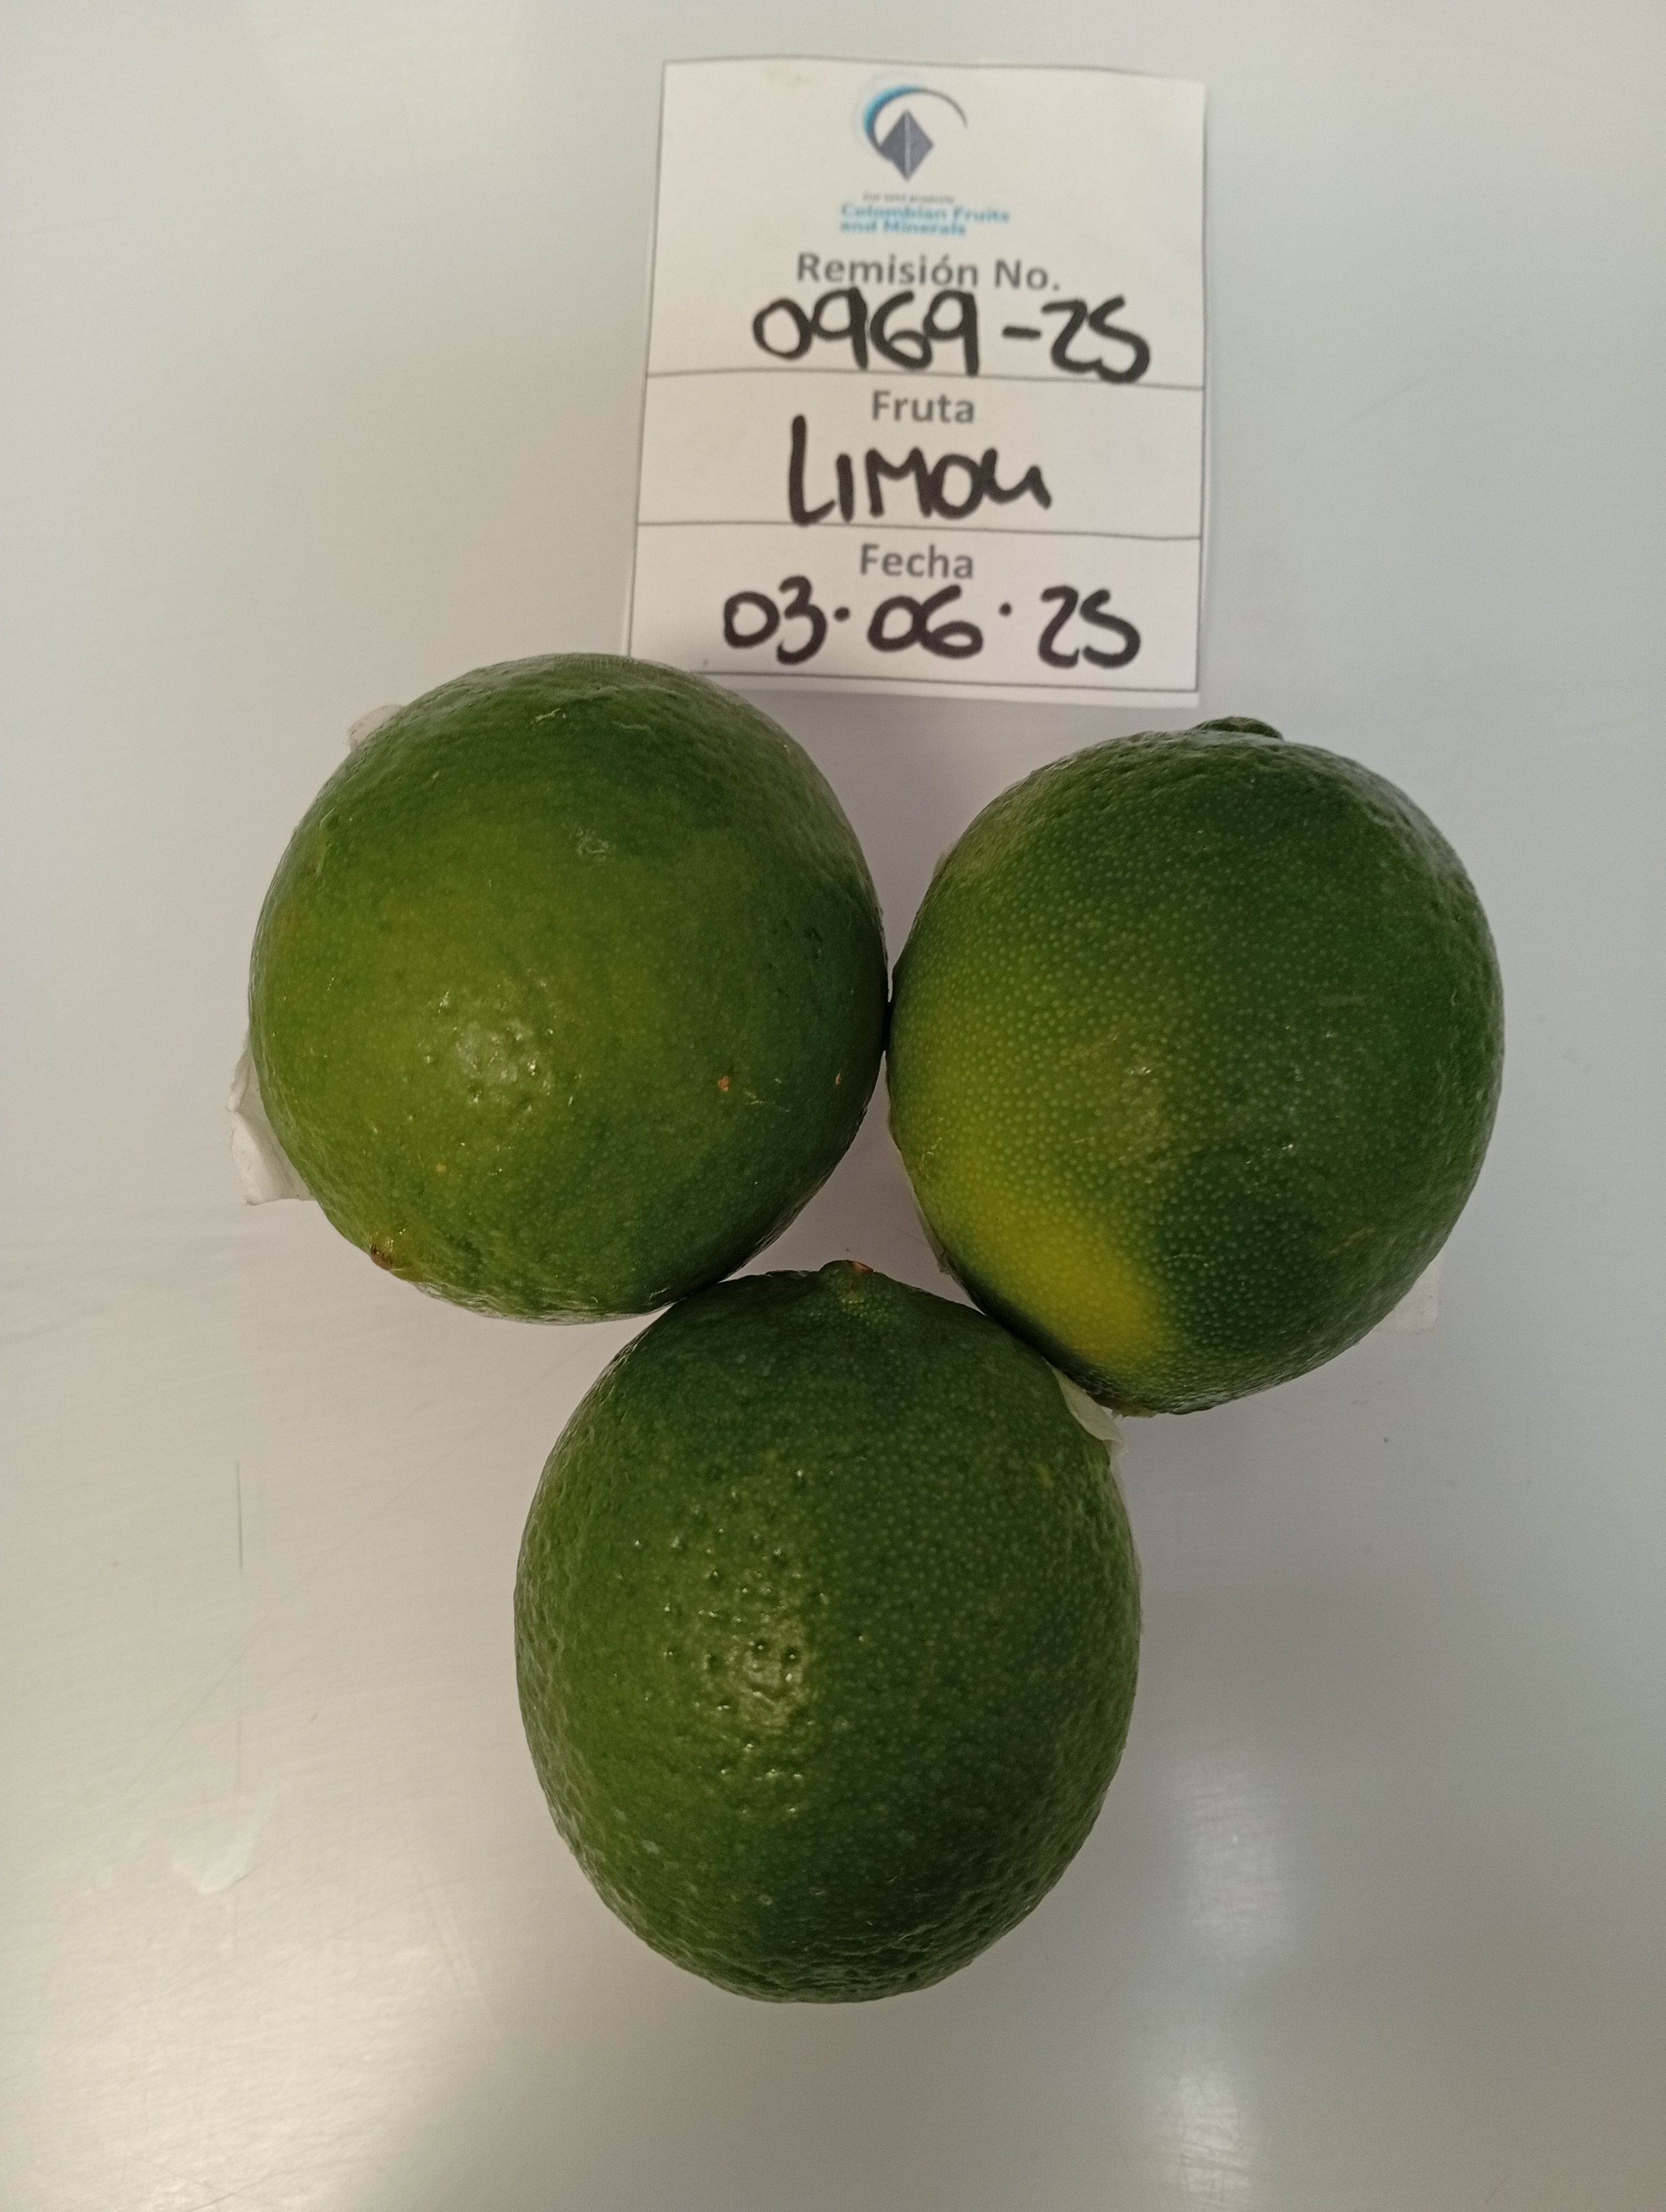 Colombian Fruits
and Minerals
Remisión No.
0969-25
Fruta
LIMON
Fecha
03.06.25